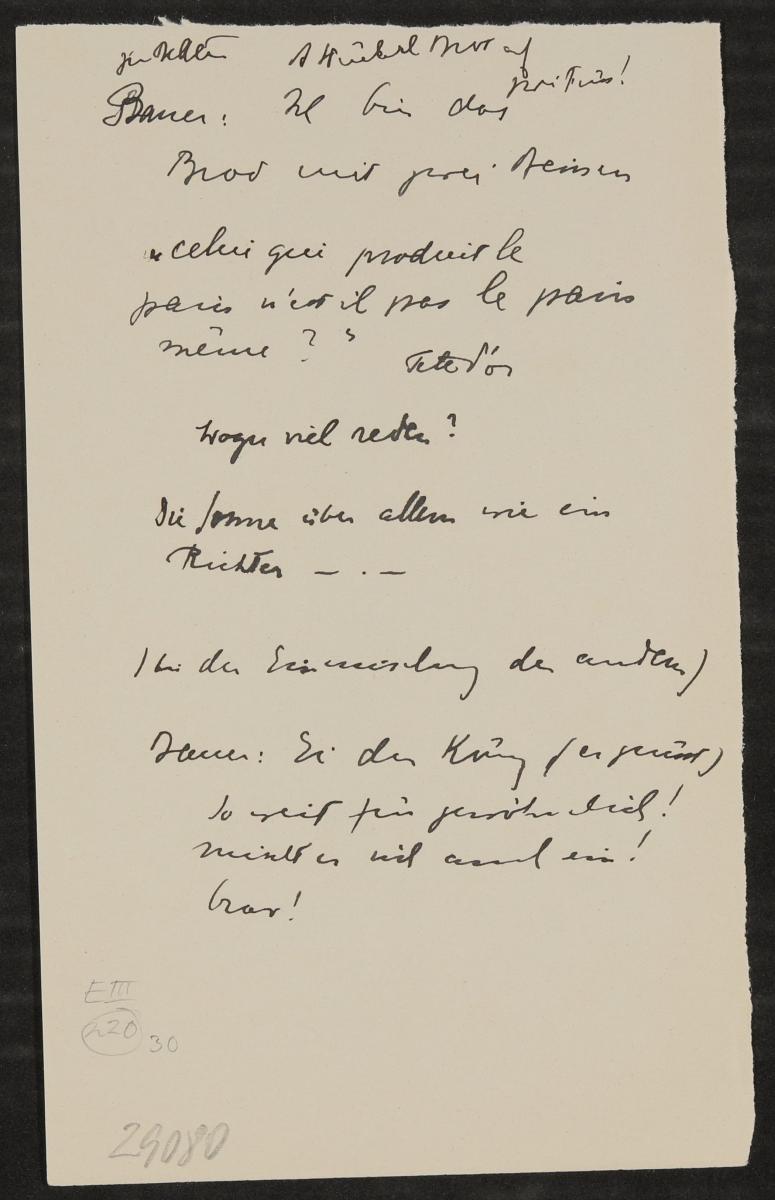 zwei Füss!
Bauer: Ich bin das
Brod mit zwei Beinen
"celui qui produit le
pain n'est il pas le pain
même?"
Tete d'or
Wozu viel reden?
Die Sonne über allem wie ein
Richter — . —
(bei der Einmischung der andern)
Bauer: Ei der König (er grüsst)
So weit für gewöhnlich!
mischt er sich auch ein!
brav!
E III
220
30
29080